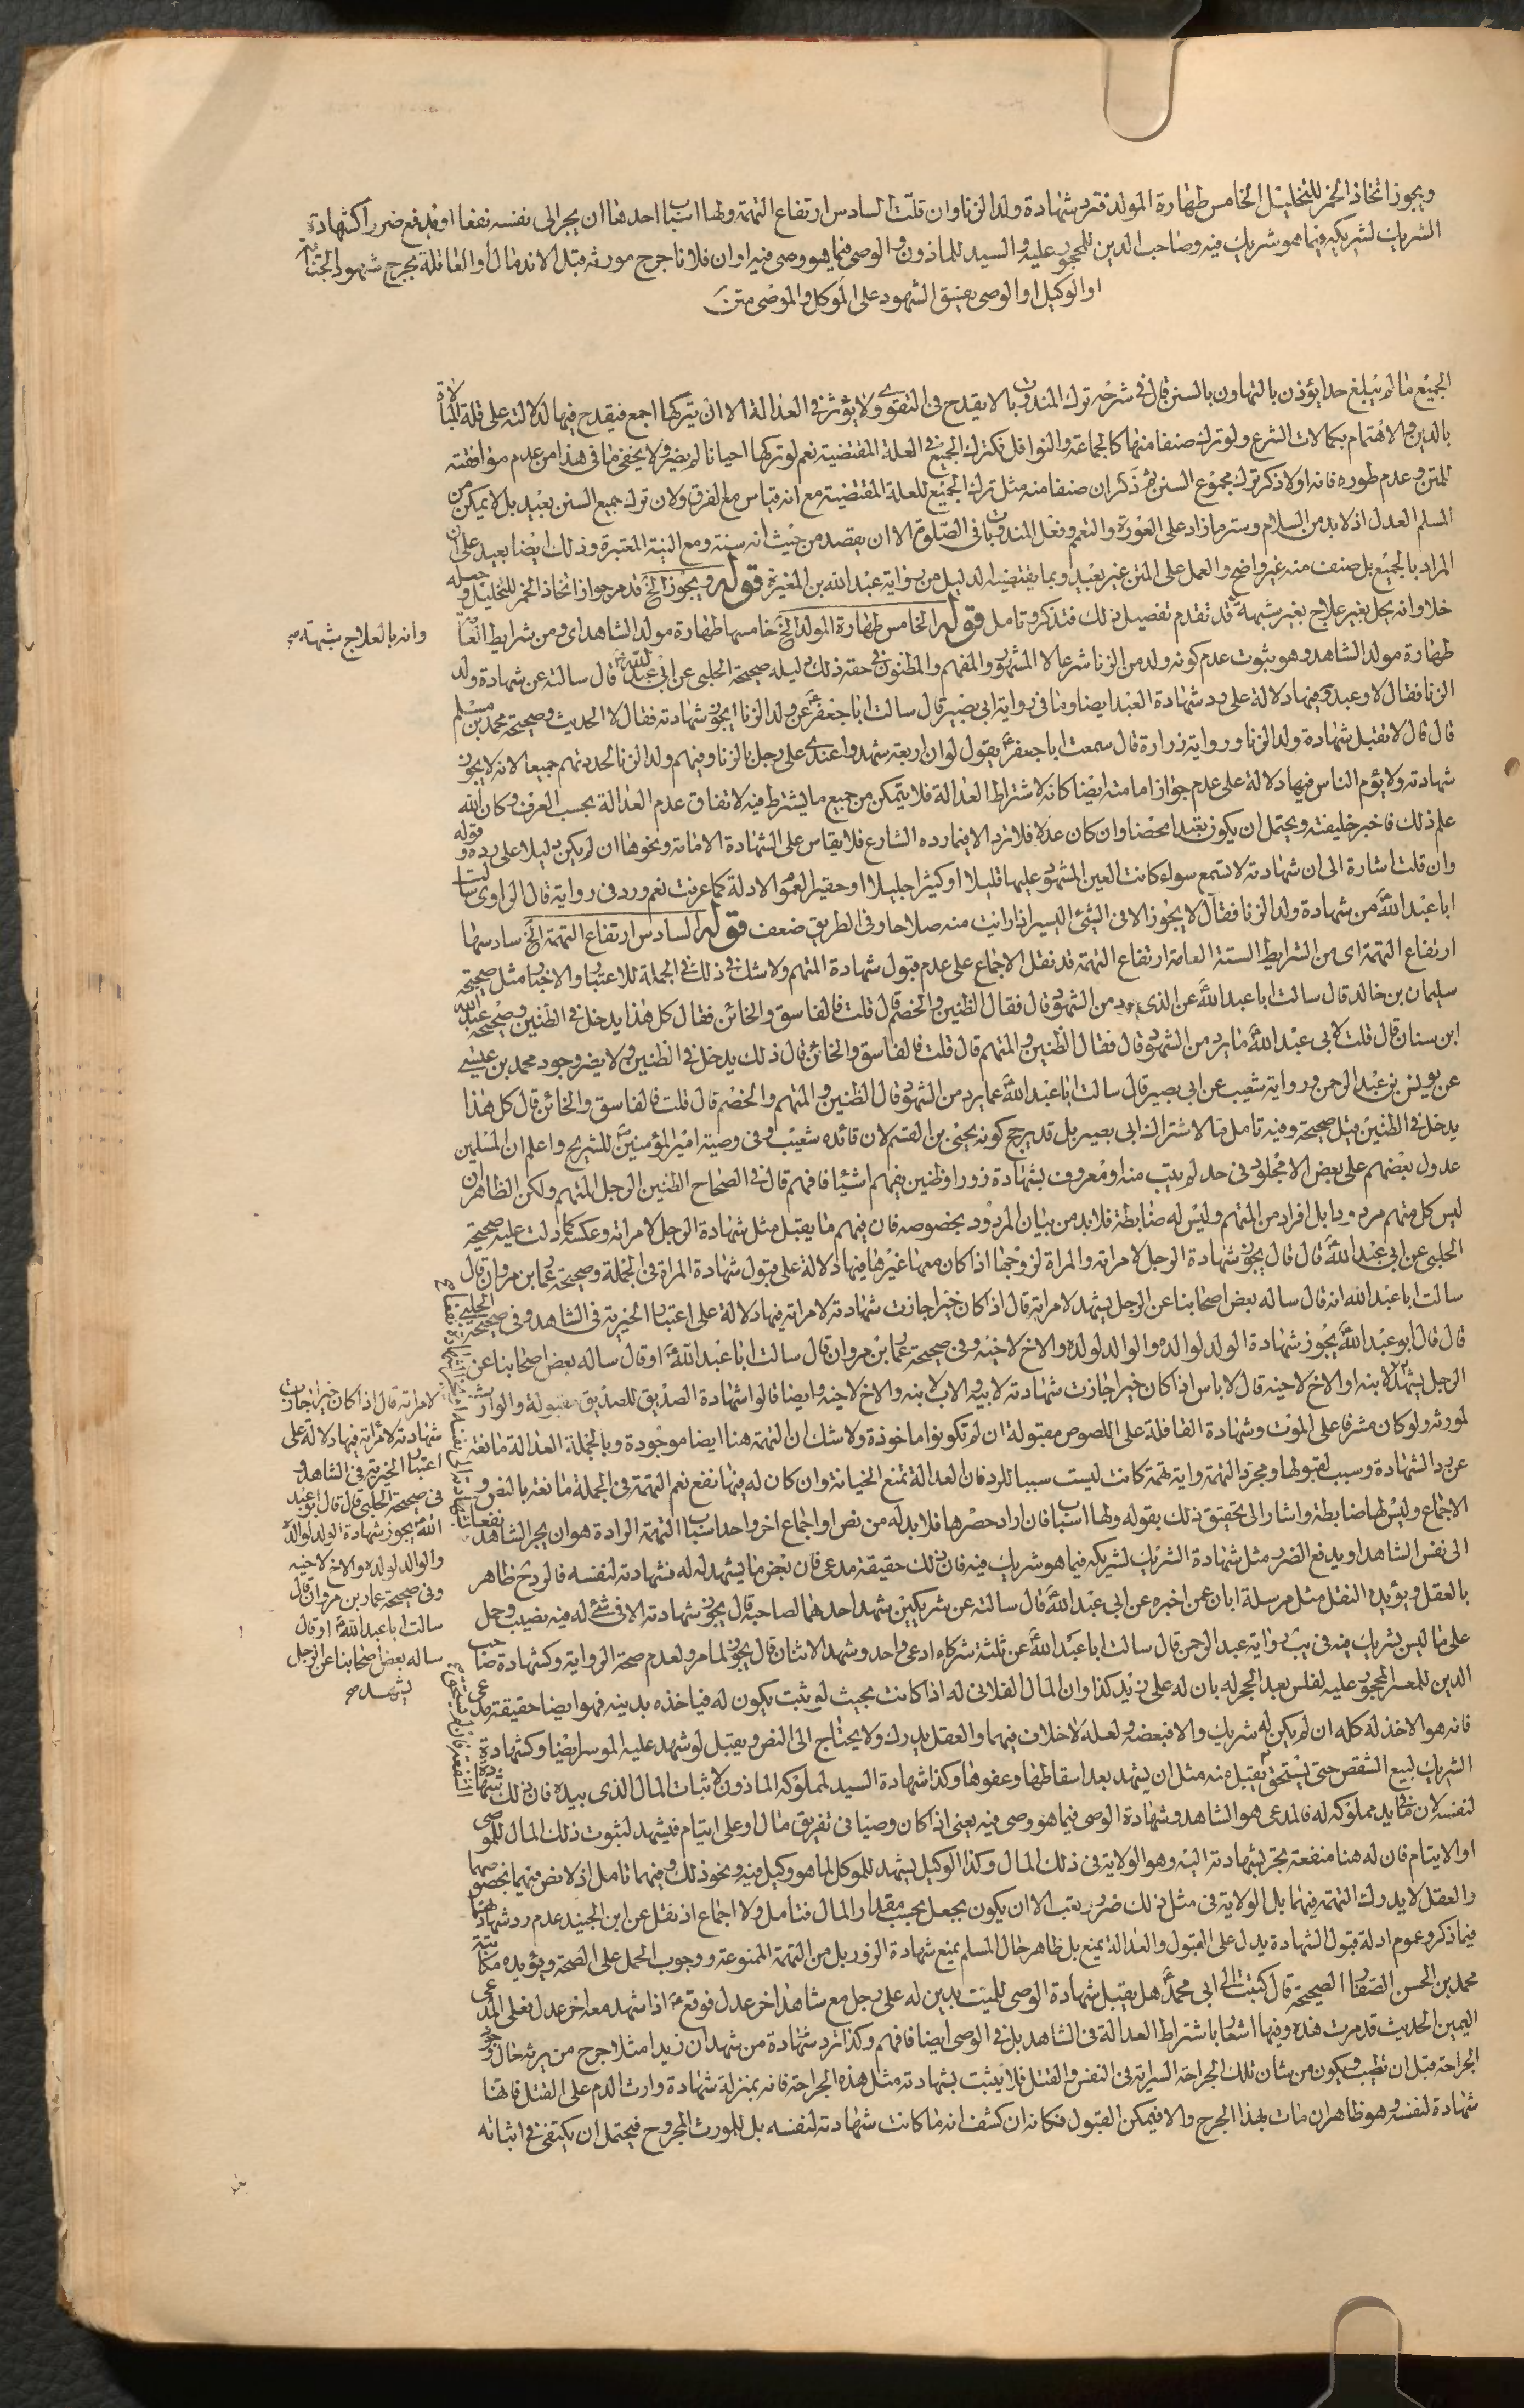 ويجوز اتخاذ الخمر للتخليل الخامس طهارة المولد فترد شهادة ولد الزنا وان قلت السادس ارتفاع التهمة ولها اسباب احدها ان يجر الى نفسه نفعا او يدفع ضررا كشهادة
الشريك لشريكه فيما هو شريك فيه وصاحب الدين للمحجور عليه والسيد للماذون والوصى فيما هو وصى فيه او ان فلانا جرح مورثه قبل الاندمال او العاقلة بجرح شهود الجناية
او الوكيل او الوصى بفسق الشهود على الموكل والموصى متن
الجميع ما لم يبلغ حدا يؤذن بالتهاون بالسنن قال فى شرحه ترك المندوبات لا يقدح فى التقوى ولا يؤثر فى العدالة الا ان يتركها اجمع فيقدح فيها لدلالته على قلة المبالاة
بالدين والاهتمام بكمالات الشرع ولو ترك صنفا منها كالجماعة والنوافل فكترك الجميع فى العلة المقتضية نعم لو تركها احيانا لم يضر ولا يخفى ما فى هذا من عدم موافقته
للمتن وعدم طوره فانه اولا ذكر ترك مجموع السنن ثم ذكر ان صنفا منه مثل ترك الجميع للعلة المقتضية مع انه قياس مع الفرق ولان ترك جميع السنن بعيد بل لا يمكن من
المسلم العدل اذ لا بد من السلام وستر ما زاد على العورة والتعمم وفعل المندوبات فى الصلوة الا ان يقصد من حيث انه سنة ومع النية المعتبرة وذلك ايضا بعيد على ان
المراد بالجميع بل صنف منه غير واضح والعمل على المتن غير بعيد وبما يقتضيه الدليل من رواية عبد الله بن المغيرة قوله ويجوز الخ قد مر جواز اتخاذ الخمر للتخليل وجعله
خلا وانه يحل بغير علاج بغير شبهة قد تقدم تفصيل ذلك فتذكر وتامل قوله الخامس طهارة المولد الخ خامسها طهارة مولد الشاهد اى ومن شرايط العامة
وانه بالعلاج شبهة صح
طهارة مولد الشاهد وهو بثبوت عدم كونه ولد من الزنا شرعا لا المشهور والمفهم والمظنون فى حقه ذلك دليله صحيحة الحلبى عن ابى عبد الله قال سالته عن شهادة ولد
الزنا فقال لا ولا عبد وفيها دلالة على رد شهادة العبد ايضا وما فى رواية ابى بصير قال سالت ابا جعفر عن ولد الزنا ايجوز شهادته فقال لا الحديث وصحيحة محمد بن مسلم
قال قال لا تقبل شهادة ولد الزنا ورواية زرارة قال سمعت ابا جعفر يقول لو ان اربعة شهدوا عندى على رجل بالزنا وفيهم ولد الزنا لحددتهم جميعا لانه لا يجوز
شهادته ولا يؤم الناس فيها دلالة على عدم جواز امامته ايضا كانه لاشتراط العدالة فلا يتمكن من جميع ما يشترط فيه لاتفاق عدم العدالة بحسب العرف وكان الله
علم ذلك فاخبر خليفته ويحتمل ان يكون تعبدا محضا وان كان عدلا فلا ترد الا فيما رده الشارع فلا يقاس على الشهادة الامامة ونحوها ان لم يكن دليلا على رده وقوله
وان قلت اشارة الى ان شهادته لا تسمع سواء كانت العين المشهود عليها قليلا او كثيرا جليلا او حقيرا لعموم الادلة كما عرفت نعم ورد فى رواية قال الراوى سالت
ابا عبد الله من شهادة ولد الزنا فقال لا يجوز الا فى الشئ اليسير اذا رايت منه صلاحا وفى الطريق ضعف قوله السادس ارتفاع التهمة الخ سادسها
ارتفاع التهمة اى من الشرايط الستة العامة ارتفاع التهمة قد نقل الاجماع على عدم قبول شهادة المتهم ولا شك فى ذلك فى الجملة للاعتبار والاخبار مثل صحيحة
سليمان بن خالد قال سالت ابا عبد الله عن الذى يرد من الشهود قال فقال الظنين والخصم قال قلت فالفاسق والخائن فقال كل هذا يدخل فى الظنين وصحيحة عبد الله
ابن سنان قال قلت لابى عبد الله ما يرد من الشهود قال فقال الظنين والمتهم قال قلت فالفاسق والخائن قال ذلك يدخل فى الظنين ولا يضر وجود محمد بن عيسى
عن يونس بن عبد الرحمن ورواية شعيب عن ابى بصير قال سالت ابا عبد الله عما يرد من الشهود قال الظنين والمتهم والخصم قال قلت فالفاسق والخائن قال كل هذا
يدخل فى الظنين قيل صحيحة وفيه تامل لما لاشتراك ابى بصير بل قد يرجح كونه يحيى بن القسم لان قائده شعيب وفى وصية امير المؤمنين للشريح واعلم ان المسلمين
عدول بعضهم على بعض الا مجلود فى حد لم يتب منه او معروف بشهادة زور او ظنين يفهم اشيئا فافهم قال فى الصحاح الظنين الرجل المتهم ولكن الظاهر ان
ليس كل متهم مردودا بل افراد من المتهم وليس له ضابطة فلا بد من بيان المردود بخصوصه فان فيهم ما يقبل مثل شهادة الرجل لامراته وعكسه كما دلت عليه صحيحة
الحلبى عن ابى عبد الله قال قال يجوز شهادة الرجل لامراته والمراة لزوجها اذا كان معها غيرها فيها دلالة على قبول شهادة المراة فى الجملة وصحيحة عمار بن مروان قال
سالت ابا عبد الله انه قال ساله بعض اصحابنا عن الرجل يشهد لامراته قال اذا كان خيرا جازت شهادته لامراته فيها دلالة على اعتبار الخيرية فى الشاهد وفى صحيحة الحلبى
قال قال ابو عبد الله يجوز شهادة الولد لوالده والوالد لولده والاخ لاخيه وفى صحيحة عمار بن مروان قال سالت ابا عبد الله او قال ساله بعض اصحابنا عن
الرجل يشهد لابنه او الاخ لاخيه قال لا باس اذا كان خيرا جازت شهادته لابيه والاب لابنه والاخ لاخيه وايضا قالوا شهادة الصديق للصديق مقبولة والوارث
لمورثه ولو كان مشرفا على الموت وشهادة القافلة على اللصوص مقبولة ان لم تكونوا ماخوذة ولا شك ان التهمة هنا ايضا موجودة وبالجملة العدالة مانعة
عن رد الشهادة وسبب لقبولها ومجرد التهمة واية تهمة كانت ليست سببا للرد فان العدالة تمنع الخيانة وان كان له فيها نفع نعم التهمة فى الجملة مانعة بالنص و
الاجماع وليس لها ضابطة واشار الى تحقيق ذلك بقوله ولها اسباب فان اراد حصرها فلا بد له من نص او اجماع اخر واحد اسباب التهمة الرادة هو ان يجر الشاهد نفعا
الى نفس الشاهد او يدفع الضرر مثل شهادة الشريك لشريكه فيما هو شريك فيه فان ذلك حقيقة مدعى فان بعض ما يشهد له له فشهادته لنفسه فالرد ح ظاهر
بالعقل ويؤيده النقل مثل مرسلة ابان عن اخبره عن ابى عبد الله قال سالته عن شريكين شهد احدهما لصاحبه قال يجوز شهادته الا فى شئ له فيه نصيب وحمل
على ما ليس بشريك فيه فى رواية عبد الرحمن قال سالت ابا عبد الله عن ثلثة شركاء ادعى واحد وشهد الاثنان قال يجوز لما مر ولعدم صحة الرواية وكشهادة صاحب
الدين للمعسر المحجور عليه لفلس بعد الحجر له بان له على زيد كذا وان المال الفلانى له اذا كانت بحيث لو ثبت يكون له فياخذه بدينه فهو ايضا حقيقة مدعى
فانه هو الاخذ له كله ان لم يكن له شريك والا فبعضه ولعله لا خلاف فيهما والعقل يدرك ولا يحتاج الى النص ويقبل لو شهد عليه الموسر ايضا وكشهادة
الشريك لبيع الشقص حتى يستحق يقبل منه مثل ان يشهد بعد اسقاطها وعفوها وكذا شهادة السيد لمملوكه الماذون لاثبات المال الذى بيده فان ذلك شهادة
لنفسه لان ما فى يد مملوكه له فالمدعى هو الشاهد وشهادة الوصى فيما هو وصى فيه يعنى اذا كان وصيا فى تفريق مال او على ايتام فيشهد لثبوت ذلك المال للموصى
او الايتام فان له هنا منفعة يجر بشهادته اليه وهو الولاية فى ذلك المال وكذا الوكيل يشهد للموكل لما هو وكيل فيه ونحو ذلك وفيهما تامل اذ لا نص فيهما بخصوصهما
والعقل لا يدرك التهمة فيهما بل الولاية فى مثل ذلك ضرر وتعب الا ان يكون بجعل بحسب مقدار المال فتامل ولا اجماع اذ نقل عن ابن الجنيد عدم رد شهادتهما
فيما ذكر وعموم ادلة قبول الشهادة يدل على القبول والعدالة يمنع بل ظاهر حال المسلم يمنع شهادة الزور بل من التهمة الممنوعة ووجوب الحمل على الصحة ويؤيده مكاتبة
محمد بن الحسن الصفار الصحيحة قال كتبت الى ابى محمد هل يقبل شهادة الوصى للميت بدين له على رجل مع شاهد اخر عدل فوقع اذا شهد معه اخر عدل فعلى المدعى
اليمين الحديث قد مرت هذه وفيها اشعار باشتراط العدالة فى الشاهد بل فى الوصى ايضا فافهم وكذا ترد شهادة من شهد ان زيدا مثلا جرح من يرثه حال
الجراحة قبل ان تطيب ويكون من شان تلك الجراحة السراية فى النفس والقتل فلا يثبت بشهادته مثل هذه الجراحة فانه بمنزلة شهادة وارث الدم على القتل فانها
شهادة لنفسه وهو ظاهر ان مات بهذا الجرح والا فيمكن القبول فكانه ان كشف انه ما كانت شهادته لنفسه بل للمورث المجروح فيحتمل ان يكتفى فى اثباته
لامراته قال اذا كان خيرا جازت
شهادته لامراته فيها دلالة على
اعتبار الخيرية فى الشاهد و
فى صحيحة الحلبى قال قال ابو عبد
الله يجوز شهادة الولد لوالده
والوالد لولده والاخ لاخيه
وفى صحيحة عمار بن مروان قال
سالت ابا عبد الله او قال
ساله بعض اصحابنا عن الرجل
يشهد صح